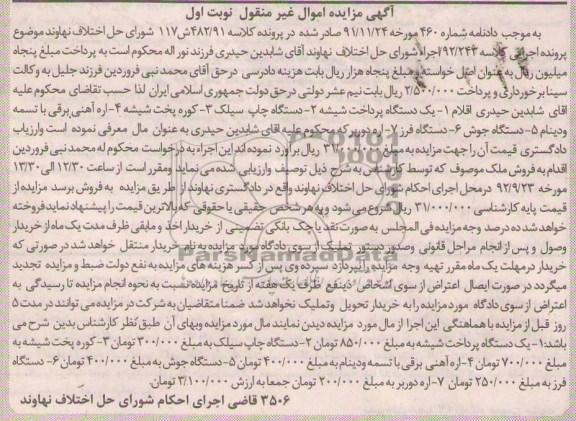 آگهی مزایده اموال غیر منقول نوبت اول
به موجب دادنامه شماره ۴۶۰ مورخه ۹۱/۱۱/۲۴ صادر شده در پرونده کلاسه ۴۸۲/۹۱ش۱۱۷ شورای حل اختلاف نهاوند موضوع
پرونده اجرایی کلاسه ۹۲/۲۴۳اجراء شورای حل اختلاف نهاوند آقای شاهدین حیدری فرزند نور اله محکوم است به پرداخت مبلغ پنجاه
میلیون ریال به عنوان اصل خواسته و مبلغ پنجاه هزار ریال بابت هزینه دادرسی در حق آقای محمد نبی فروردین فرزند جلیل به وکالت
سینا برخورداری و پرداخت ۲/۵۰۰/۰۰۰ ریال بابت نیم عشر دولتی درحق دولت جمهوری اسلامی ایران لذا حسب تقاضای محکوم علیه
آقای شاهدین حیدری اقلام ۱- یک دستگاه پرداخت شیشه ۲-دستگاه چاپ سیلک ۳- کوره پخت شیشه ۴-اره آهنی برقی با تسمه
ودینام ۵-دستگاه جوش ۶-دستگاه فرز ۷-اره دوربر و محکوم علیه آقای شاهدین حیدری به عنوان مال معرفی نموده است وارزیاب
دادگستری قیمت آن را جهت مزایده به مبلغ ۳۱/۰۰۰/۰۰۰ ریال برآورد نموده اند این اجراء به درخواست محکوم له محمد نبی فروردین
اقدام به فروش ملک موصوف که توسط کارشناس به شرح ذیل توصیف وارزیابی شده می نماید ومقرر است از ساعت ۱۲/۳۰ الی ۱۳/۳۰
مورخه ۹۲/۹/۲۳ درمحل اجرای احکام شورای حل اختلاف نهاوند واقع در دادگستری نهاوند از طریق مزایده به فروش برسد مزایده از
قیمت پایه کارشناسی ۳۱/۰۰۰/۰۰۰ ریال شروع می شود و به هر شخص حقیقی یا حقوقی که بالاترین قیمت را پیشنهاد نماید فروخته
خواهد شد ده درصد وجه مزایده فی المجلس به صورت نقد یا چک بانکی تضمینی از خریدار اخذ و مابقی ظرف مدت یک ماه از خریدار
وصول و پس از انجام مراحل قانونی وصدور دستور تملیک از سوی دادگاه مورد مزایده به نام خریدار منتقل خواهد شد در صورتی که
خریدار در مهلت یک ماه مقرر تهیه وجه مزایده را نپردازد سپرده وی پس از کسر هزینه های مزایده به نفع دولت ضبط و مزایده تجدید
میگردد در صورت ایصال اعتراض از سوی اشخاص ذینفع ظرف یک هفته از تاریخ مزایده نسبت به نحوه انجام مزایده تا رسیدگی به
اعتراض از سوی دادگاه مورد مزایده را به خریدار تحویل وتملیک نخواهد شد ضمنا متقاضیان به شرکت در مزایده می توانند در مدت ۵
روز قبل از مزایده با هماهنگی این اجرا از مال مورد مزایده دیدن نمایند مال مورد مزایده وبهای آن طبق نظر کارشناس بدین شرح می
باشد:۱-یک دستگاه پرداخت شیشه به مبلغ ۸۵۰/۰۰۰ تومان ۲-دستگاه چاپ سیلک به مبلغ ۳۰۰/۰۰۰ تومان ۳-کوره پخت شیشه به
مبلغ ۷۰۰/۰۰۰ تومان ۴-اره آهنی برقی با تسمه ودینام به مبلغ ۴۰۰/۰۰۰ تومان ۵-دستگاه جوش به مبلغ ۴۰۰/۰۰۰ تومان ۶-دستگاه
فرز به مبلغ ۲۵۰/۰۰۰ تومان ۷-اره دوربر به مبلغ ۲۰۰/۰۰۰ تومان جمعا به ارزش ۳/۱۰۰/۰۰۰ تومان.
۳۵۰۶ قاضی اجرای احکام شورای حل اختلاف نهاوند
ParsNamadData